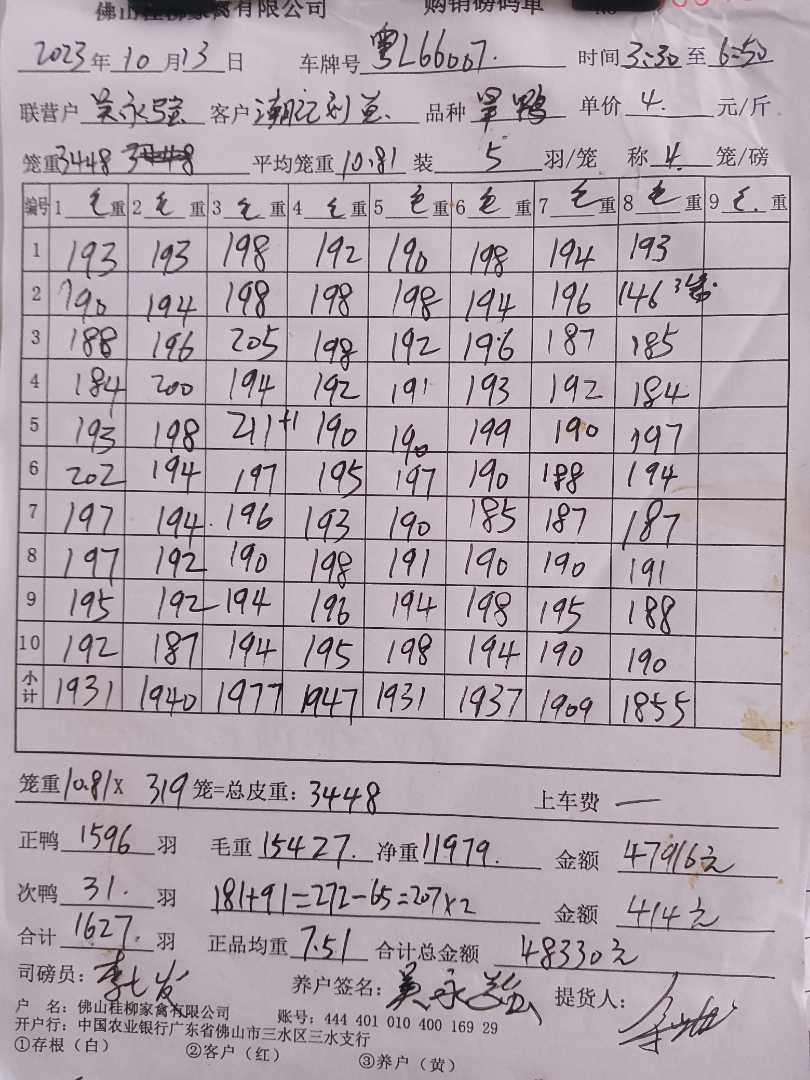 佛山桂柳家禽有限公司 购销磅码单
2023年10月13日 车牌号 粤L66007. 时间3:30至6:50
联营户 吴永强 客户 品种 旱鸭 单价 4. 元/斤
笼重3448 平均笼重10.81 装 5 羽/笼 称 4. 笼/磅
编号 1 毛重 2 毛重 3 毛重 4 毛重 5 毛重 6 毛重 7 毛重 8 毛重 9 毛重
1 193 193 198 192 190 198 194 193
2 190 194 198 198 198 194 196 146 3笼
3 188 196 205 198 192 196 187 185
4 184 200 194 192 191 193 192 184
5 193 198 211+1 190 190 199 190 197
6 202 194 197 195 197 190 188 194
7 197 194. 196 193 190 185 187 187
8 197 192 190 198 191 190 190 191
9 195 192 194 196 194 198 195 188
10 192 187 194 195 198 194 190 190
小计 1931 1940 1977 1947 1931 1937 1909 1855
笼重10.81X 319笼=总皮重：3448 上车费 —
正鸭 1596 羽 毛重 15427. 净重11979. 金额 47916元
次鸭 31. 羽 181+91=272-65=207×2 金额 414元
合计 1627. 羽 正品均重 7.51 合计总金额 48330元
司磅员： 养户签名： 提货人：
户 名：佛山桂柳家禽有限公司 账号：444 401 010 400 169 29
开户行：中国农业银行广东省佛山市三水区三水支行
①存根（白） ②客户（红） ③养户（黄）